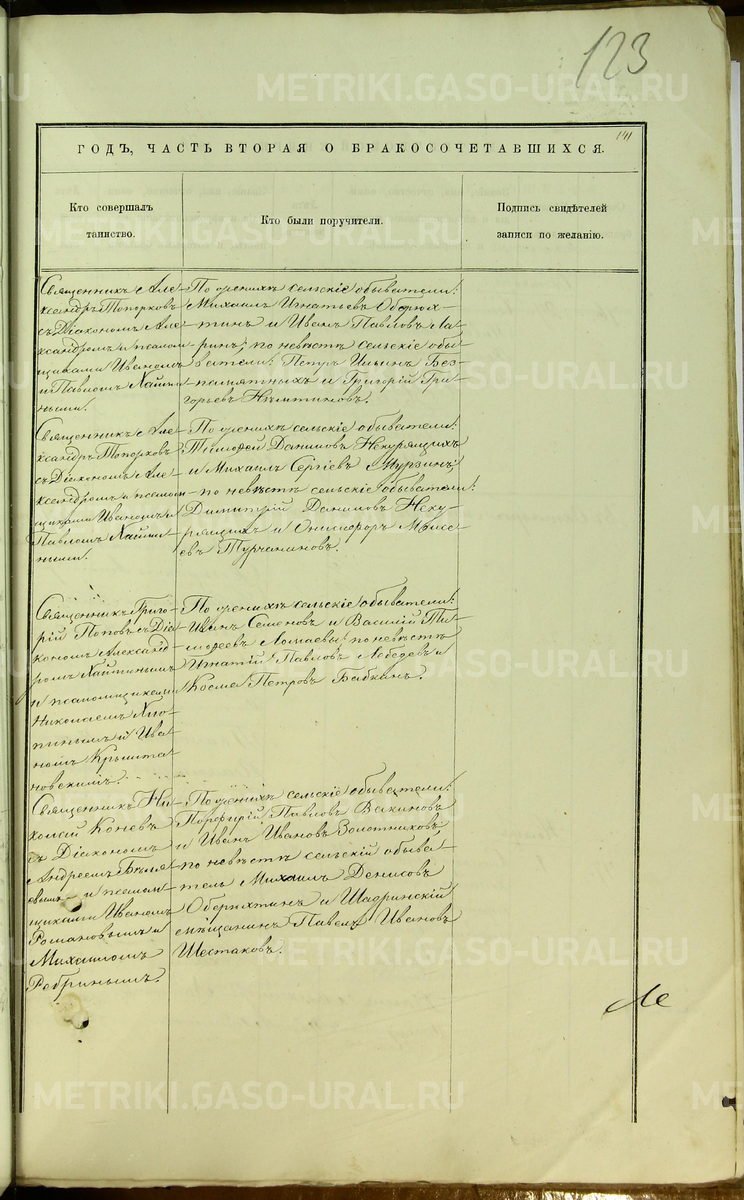 123
141
ГОДЪ, ЧАСТЬ ВТОРАЯ О БРАКОСОЧЕТАВШИХСЯ.
Кто совершалъ
таинство.
Кто были поручители.
Подпись свидѣтелей
записи по желанію.
Священникъ Але-
ксандръ Топорковъ
съ Діакономъ Але-
ксандромъ и псалом-
щиками Иваномъ
и Павломъ Хайми-
ными.
По женихѣ сельскіе обыватели:
Михаилъ Игнатьевъ Оберюх-
тинъ и Иванъ Павловъ Ла-
ринъ; по невѣстѣ сельскіе обы-
ватели: Петръ Ильинъ Без-
памятныхъ и Григорій Гри-
горьевъ
Священникъ Але-
ксандръ Топорковъ
съ Діакономъ Але-
ксандромъ и псалом-
щиками Иваномъ и
Павломъ Хайми-
ными.
По женихѣ сельскіе обыватели:
Тимофей Даниловъ Некурящихъ
и Михаилъ Сергіевъ Мурзинъ;
по невѣстѣ сельскіе обыватели:
Димитрій Даниловъ Неку-
рящихъ и Онисифоръ Моисе-
евъ Турчаниновъ.
Священникъ Григо-
рій Поповъ съ Діа-
кономъ Александ-
ромъ
и псаломщиками
Николаемъ
и Ива-
номъ Крышта-
новскимъ.
По женихѣ сельскіе обыватели:
Иванъ Семеновъ и Василій Ти-
мофеевъ Ломаевы; по невѣстѣ
Игнатій Павловъ Лебедевъ и
Косма Петровъ Бабкинъ.
Священникъ Ни-
колай Коневъ
съ Діакономъ
Андреемъ Бѣля-
евымъ и псалом-
щиками Иваномъ
Романовымъ и
Михаиломъ
Ребринымъ.
По женихѣ сельскіе обыватели:
Порфирій Павловъ Вакиновъ
и Иванъ Ивановъ Золотниковъ,
по невѣстѣ сельскій обыва-
тель Михаилъ Денисовъ
Оберюхтинъ и Шадринскій
мѣщанинъ Павелъ Ивановъ
Шестаковъ.
METRIKI.GASO-URAL.RU
METRIKI.GASO-URAL.RU
METRIKI.GASO-URAL.RU
METRIKI.GASO-URAL.RU
METRIKI.GASO-URAL.RU
METRIKI.GASO-URAL.RU
METRIKI.GASO-URAL.RU
METRIKI.GASO-URAL.RU